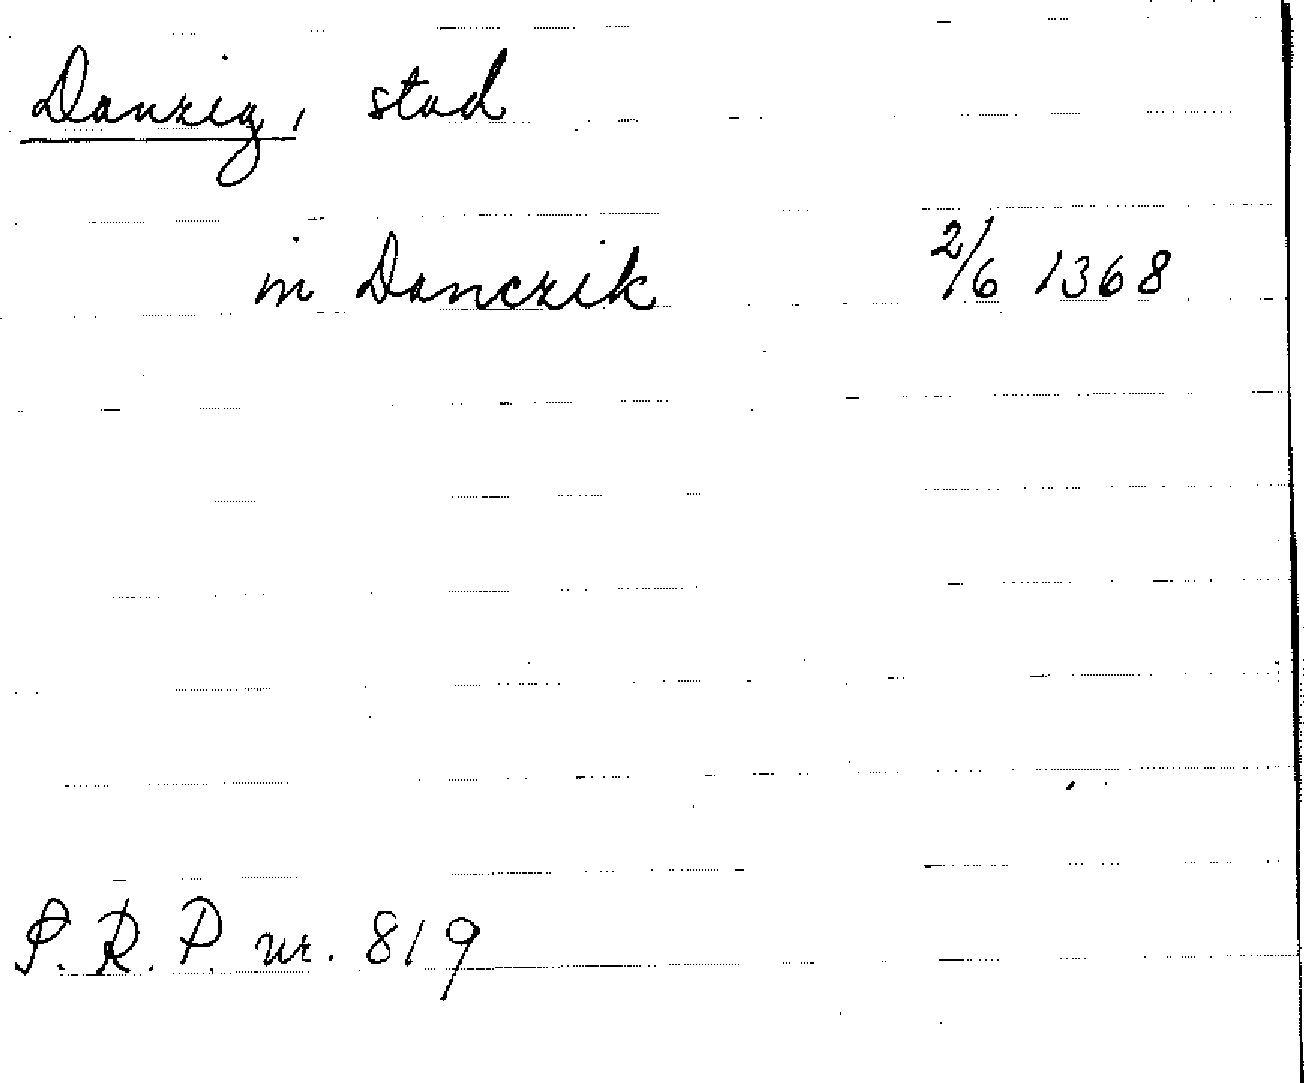 Danzig, stad
in Danczik 2/6 1368
S.R.P. nr. 819